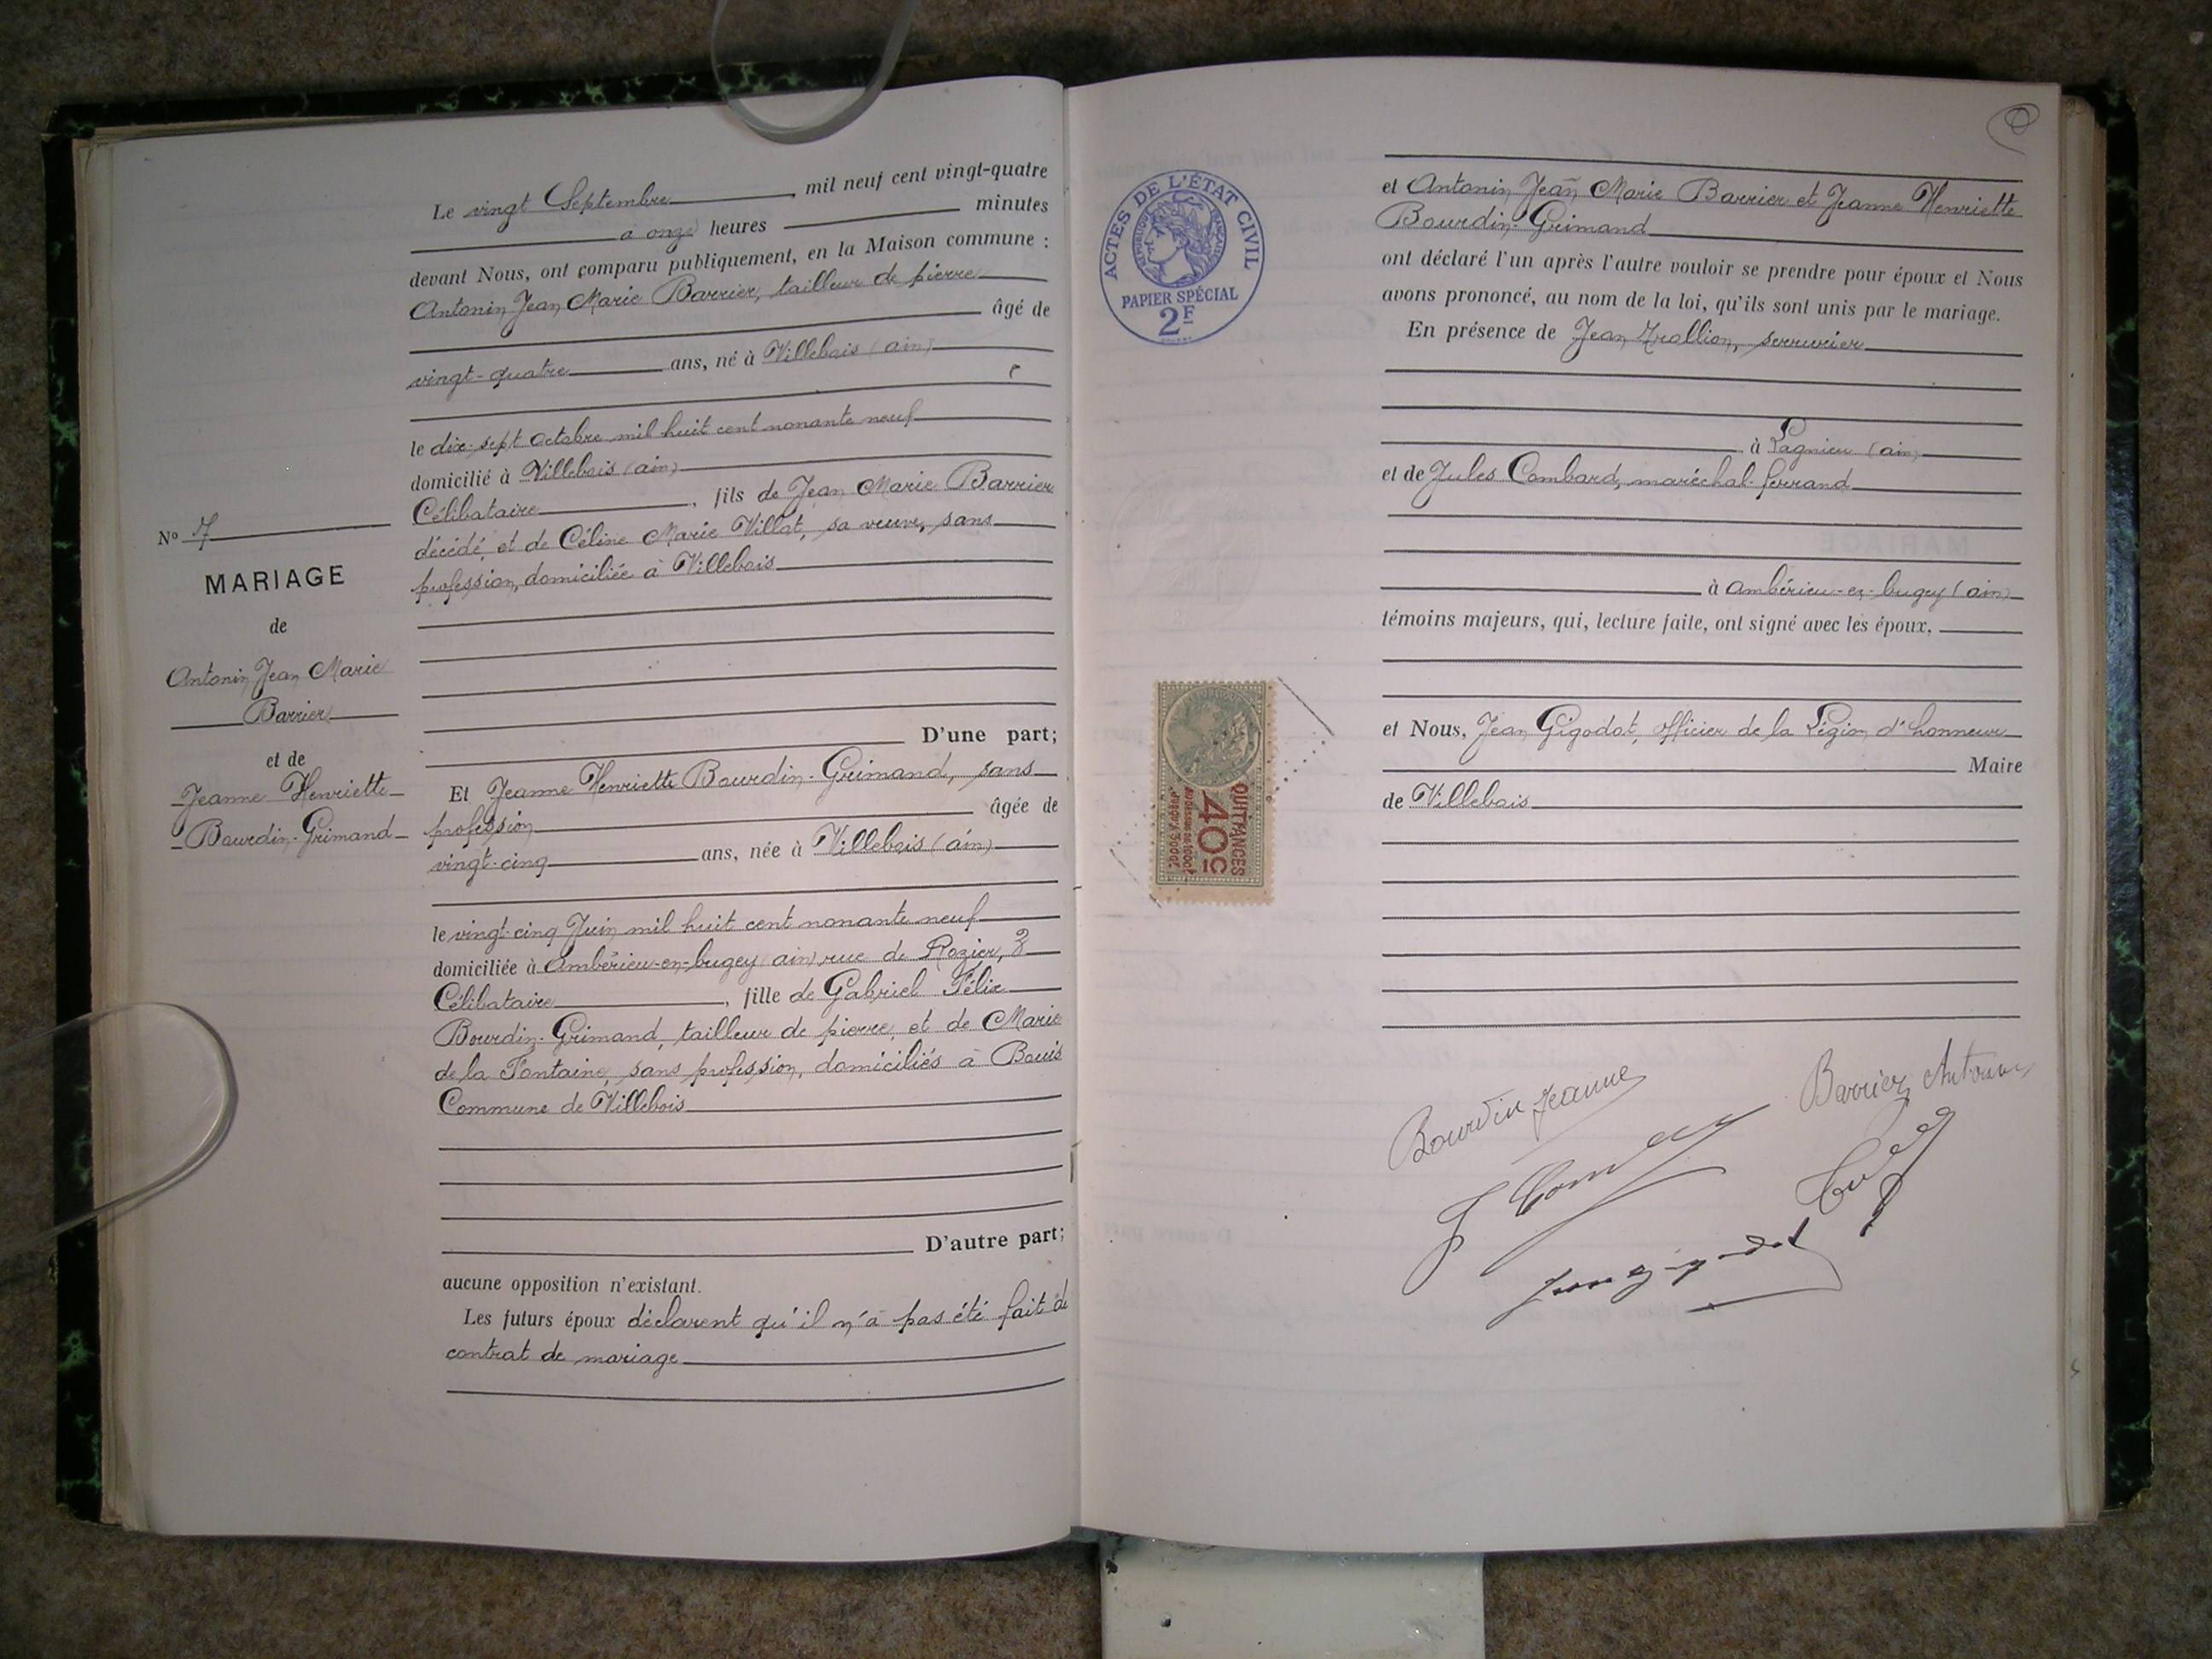 Nº 7
MARIAGE
de
Antonin Jean Marie
Barrier
et de
Jeanne Henriette
Bourdin-Grimand
Le vingt Septembre mil neuf cent vingt-quatre
à onze heures minutes
devant Nous, ont comparu publiquement, en la Maison commune :
Antonin Jean Marie Barrier, tailleur de pierre
âgé de
vingt-quatre ans, né à Villebois (ain)
le dix-sept Octobre mil huit cent nonante neuf
domicilié à Villebois (ain)
Célibataire, fils de Jean Marie Barrier
décédé, et de Céline Marie Villat, sa veuve, sans
profession, domiciliée à Villebois
D'une part;
Et Jeanne Henriette Bourdin-Grimand, sans
profession âgée de
vingt-cinq ans, née à Villebois (ain)
le vingt-cinq Juin mil huit cent nonante neuf
domiciliée à Ambérieu-en-bugey (ain) rue de Rozier, 3
Célibataire, fille de Gabriel Félix
Bourdin-Grimand, tailleur de pierre, et de Marie
de la Fontaine, sans profession, domiciliés à Bouis
Commune de Villebois
D'autre part;
aucune opposition n'existant.
Les futurs époux déclarent qu'il n'a pas été fait de
contrat de mariage
ACTES DE L'ÉTAT CIVIL
RÉPUBLIQUE FRANÇAISE
PAPIER SPÉCIAL
2F
QUITTANCES
40c
et Antonin Jean Marie Barrier et Jeanne Henriette
Bourdin-Grimand
ont déclaré l'un après l'autre vouloir se prendre pour époux et Nous
avons prononcé, au nom de la loi, qu'ils sont unis par le mariage.
En présence de Jean Trollion, serrurier
à Lagnieu (ain)
et de Jules Combard, maréchal-ferrand
à Ambérieu-en-bugey (ain)
témoins majeurs, qui, lecture faite, ont signé avec les époux,
et Nous, Jean Gigodot, Officier de la Légion d'honneur
Maire
de Villebois
Bourdin Jeanne
Barrier Antonin
Jean Gigodot